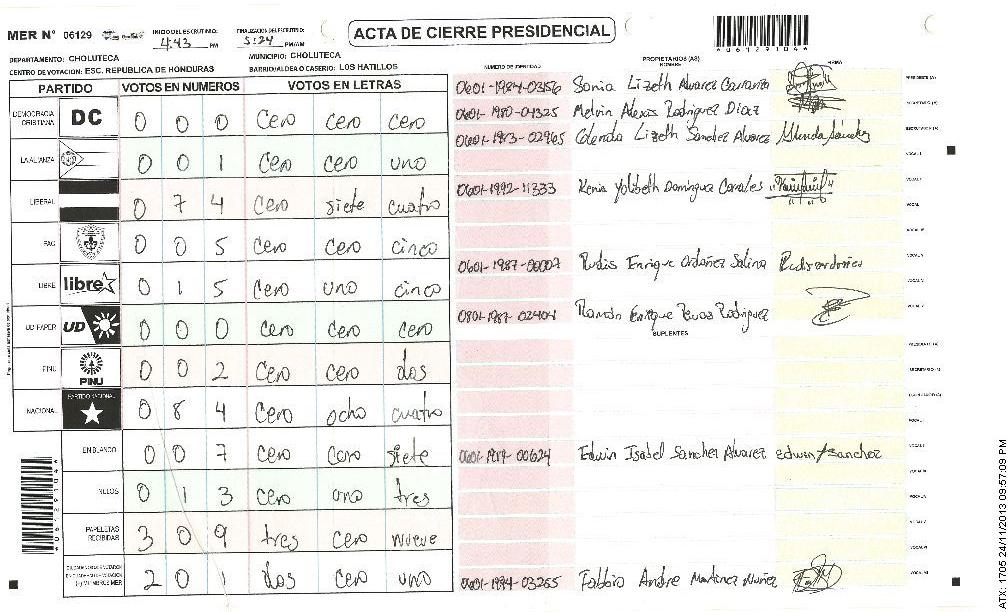 MER N° 06129
INICIO DEL ESCRUTINIO: 4:43 PM
FINALIZACION DEL ESCRUTINIO: 5:24 PM/AM
ACTA DE CIERRE PRESIDENCIAL
DEPARTAMENTO: CHOLUTECA
MUNICIPIO: CHOLUTECA
CENTRO DE VOTACION: ESC. REPUBLICA DE HONDURAS
BARRIO/ALDEA O CASERIO: LOS HATILLOS
PARTIDO VOTOS EN NUMEROS VOTOS EN LETRAS
DEMOCRACIA CRISTIANA DC 0 0 0 Cero cero cero
LA ALIANZA 0 0 1 Cero cero uno
LIBERAL 0 7 4 Cero siete cuatro
PAC 0 0 5 Cero Cero cinco
LIBRE libre 0 1 5 Cero uno cinco
UD/FAPER UD 0 0 0 Cero cero cero
PINU PINU 0 0 2 Cero Cero dos
NACIONAL PARTIDO NACIONAL 0 8 4 Cero ocho cuatro
EN BLANCO 0 0 7 Cero Cero siete
NULOS 0 1 3 Cero uno tres
PAPELETAS RECIBIDAS 3 0 9 tres cero nueve
2 0 1 dos cero uno
NUMERO DE IDENTIDAD
PROPIETARIOS (AS)
NOMBRE
FIRMA
0601-1984-03156 Sonia Lizeth Alvarez Carranza PRESIDENTE (A)
0601-1980-04325 Melvin Alexis Rodriguez Diaz SECRETARIO (A)
0601-1983-02965 Glenda Lizeth Sanchez Alvarez Glenda Sánchez ESCRUTADOR (A)
0601-1992-11333 Kenia Yolibeth Dominguez Canales
0601-1987-00007 Rudis Enrique Ordoñez Salina
0801-1987-02404 Ramón Enrique Rodriguez
SUPLENTES
PRESIDENTE (A)
SECRETARIO (A)
ESCRUTADOR (A)
0601-1989-00624 Edwin Isabel Sanchez Alvarez edwin sanchez
0601-1994-03265 Fabbio Andre Martinez Nuñez
ATX: 1705 24/11/2013 09:57:09 PM